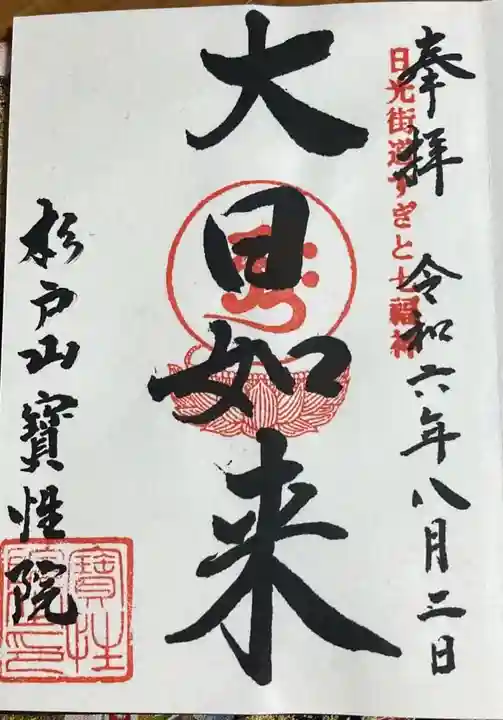 奉拝 令和六年八月三日
日光街道すぎと七福神
大日如来
杉戸山寶性院
寶性院印